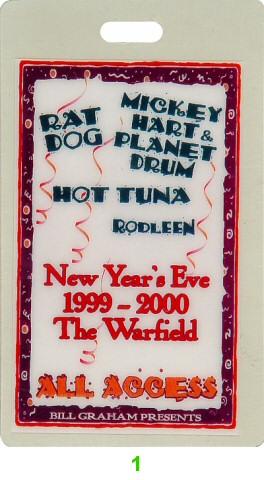 RAT
DOG
MICKEY
HART &
PLANET
DRUM
HOT TUNA
RODLEEN
New Year's Eve
1999 - 2000
The Warfield
ALL ACCESS
BILL GRAHAM PRESENTS
1